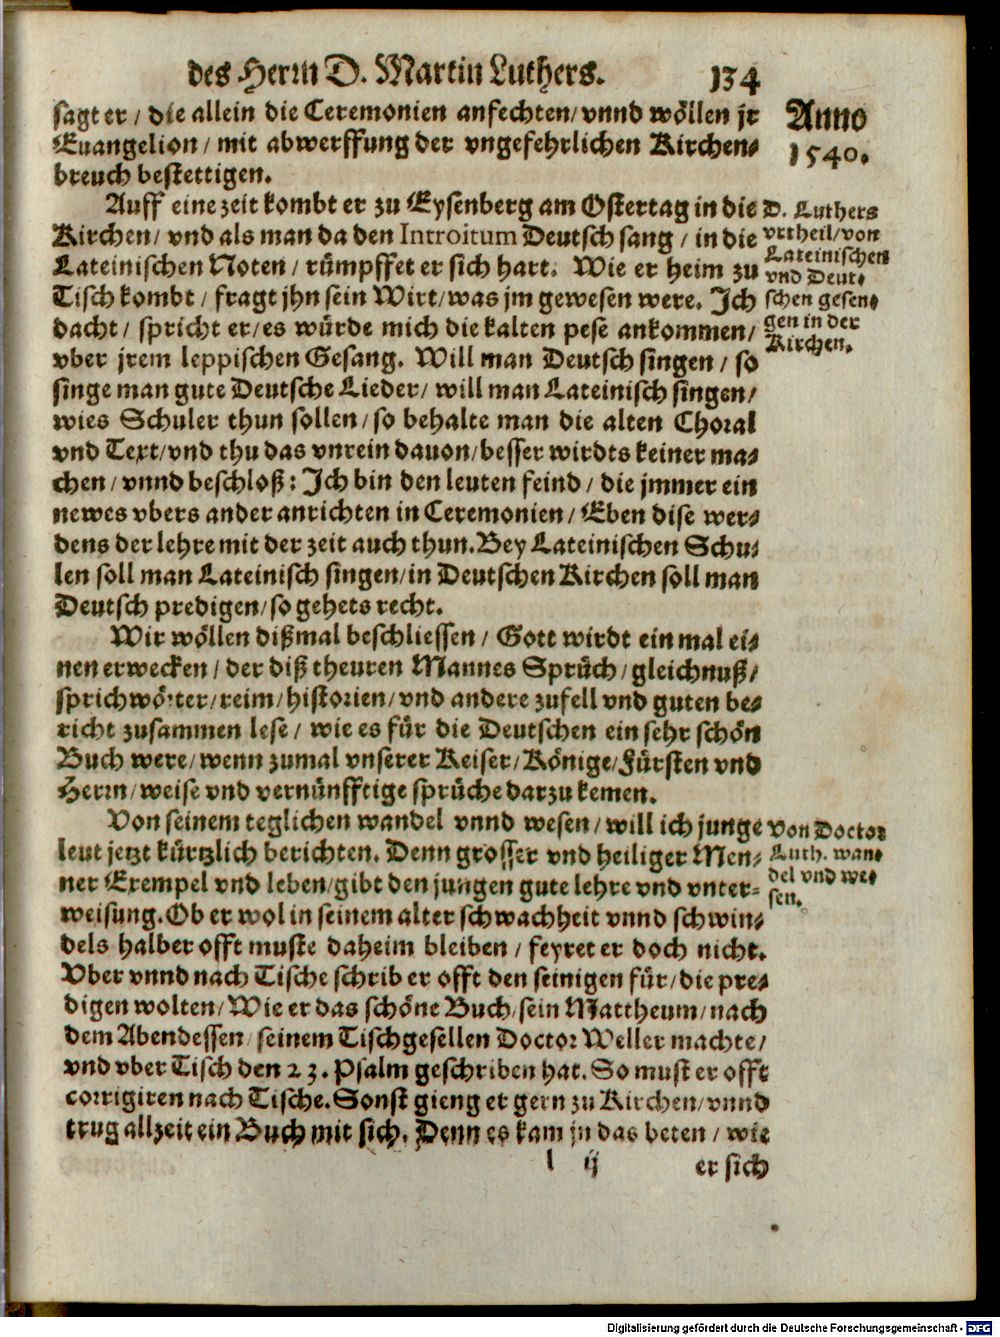 des Herrn D. Martin Luthers. 134
sagt er / die allein die Ceremonien anfechten / vnnd wöllen jr
Euangelion / mit abwerffung der vngefehrlichen Kirchen-
breuch bestettigen.
Anno
1540.
Auff eine zeit kombt er zu Eysenberg am Ostertag in die
Kirchen / vnd als man da den Introitum Deutsch sang / in die
Lateinischen Noten / rümpffet er sich hart. Wie er heim zu
Tisch kombt / fragt jhn sein Wirt / was jm gewesen were. Ich
dacht / spricht er / es würde mich die kalten pese ankommen /
vber jrem leppischen Gesang. Will man Deutsch singen / so
singe man gute Deutsche Lieder / will man Lateinisch singen /
wies Schuler thun sollen / so behalte man die alten Choral
vnd Text / vnd thu das vnrein dauon / besser wirdts keiner ma-
chen / vnnd beschloß: Ich bin den leuten feind / die jmmer ein
newes vbers ander anrichten in Ceremonien / Eben dise wer-
dens der lehre mit der zeit auch thun. Bey Lateinischen Schu-
len soll man Lateinisch singen / in Deutschen Kirchen soll man
Deutsch predigen / so gehets recht.
D. Luthers
vrtheil / von
Lateinischen
vnd Deut-
schen gesen-
gen in der
Kirchen.
Wir wöllen dißmal beschliessen / Gott wirdt ein mal ei-
nen erwecken / der diß theuren Mannes Sprüch / gleichnuß /
sprichwörter / reim / historien / vnd andere zufell vnd guten be-
richt zusammen lese / wie es für die Deutschen ein sehr schön
Buch were / wenn zumal vnserer Keiser / Könige / Fürsten vnd
Herrn / weise vnd vernünfftige sprüche darzu kemen.
Von seinem teglichen wandel vnnd wesen / will ich junge
leut jetzt kürtzlich berichten. Denn grosser vnd heiliger Men-
ner Exempel vnd leben / gibt den jungen gute lehre vnd vnter-
weisung. Ob er wol in seinem alter schwachheit vnnd schwin-
dels halber offt muste daheim bleiben / feyret er doch nicht.
Vber vnnd nach Tische schrib er offt den seinigen für / die pre-
digen wolten / Wie er das schöne Buch / sein Mattheum / nach
dem Abendessen / seinem Tischgesellen Doctor Weller machte /
vnd vber Tisch den 23. Psalm geschriben hat. So must er offt
corrigiren nach Tische. Sonst gieng er gern zu Kirchen / vnnd
trug allzeit ein Buch mit sich. Denn es kam jn das beten / wie
Von Doctor
Luth. wan-
del vnd we-
sen.
l ij er sich
Digitalisierung gefördert durch die Deutsche Forschungsgemeinschaft - DFG